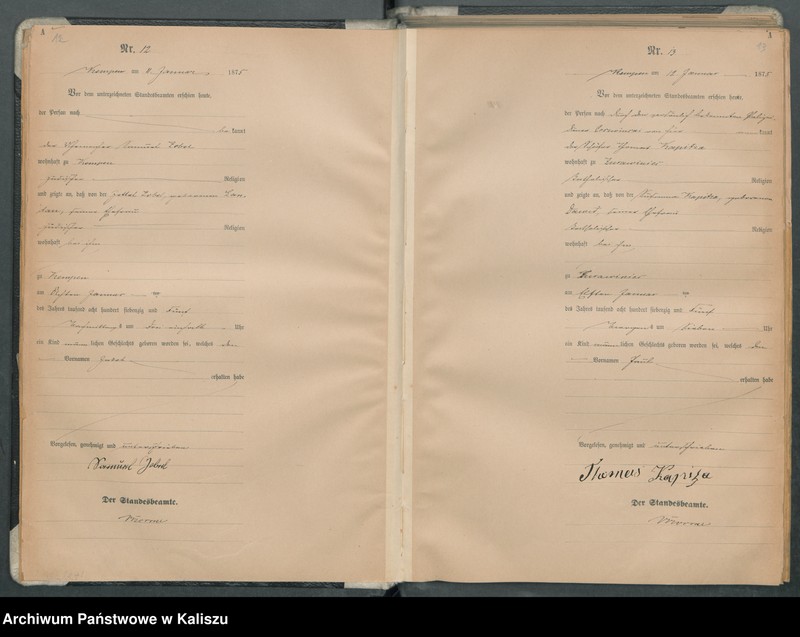 A
12
Nr. 12
Kempen am 8. Januar 1875
Vor dem unterzeichneten Standesbeamten erschien heute,
der Person nach
be kannt
der Samuel Zobel
wohnhaft zu Kempen
jüdischer Religion
und zeigte an, daß von der Zobel, geborenen
seiner Ehefrau
jüdischer Religion
wohnhaft bei ihm
zu Kempen
am Januar
des Jahres tausend acht hundert siebenzig und fünf
Nachmittags um Uhr
ein Kind männlichen Geschlechts geboren worden sei, welches den
Vornamen
erhalten habe
Vorgelesen, genehmigt und unterschrieben
Samuel Zobel
Der Standesbeamte.
A
13
Nr. 13
Kempen am 12 Januar 1875
Vor dem unterzeichneten Standesbeamten erschien heute,
der Person nach durch den persönlich bekannten
kannt
der Thomas Kapitza
wohnhaft zu
katholischer Religion
und zeigte an, daß von der Kapitza, geborenen
seiner Ehefrau
katholischer Religion
wohnhaft bei ihm,
zu
am elften Januar
des Jahres tausend acht hundert siebenzig und fünf
um sieben Uhr
ein Kind männlichen Geschlechts geboren worden sei, welches den
Vornamen Paul
erhalten habe
Vorgelesen, genehmigt und unterschrieben
Thomas Kapitza
Der Standesbeamte.
Archiwum Państwowe w Kaliszu